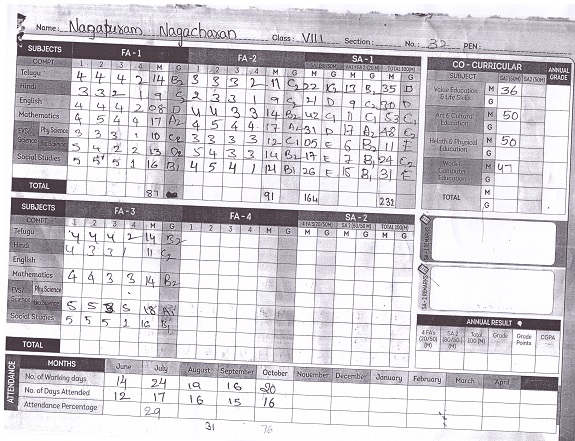 Name: Nagapuram Nagacharan Class: VIII Section: No.: 32 PEN:
SUBJECTS FA - 1 FA - 2 SA - 1
COMPT 1 2 3 4 M G 1 2 3 4 M G SA1(80/50M) FA1 FA2(20/50M) TOTAL(100M)
Telugu 4 4 4 2 14 B2 3 3 3 2 11 C2 22 13 B2 35 D
Hindi 3 3 2 1 9 2 3 3 1 9 C2 21 D 9 C2 30 D
English 4 4 4 2 08 D 4 4 3 3 14 B2 42 C1 11 C1 53 C1
Mathematics 4 5 4 4 17 A2 4 5 4 4 17 A2 31 D 17 A2 48 C2
EVS/ Science Phy.Science 3 3 3 1 10 C2 3 3 3 3 12 C1 05 E 6 B2 11 E
Bio.Science 5 4 2 2 13 5 4 3 3 14 B2 17 E 7 B1 24 C2
Social Studies 5 5 5 1 16 B1 4 5 4 1 14 B1 26 E 15 B1 31 E
TOTAL 87 91 164 232
CO - CURRICULAR
SUBJECT SA1 (50M) SA2 (50M) ANNUAL GRADE
Value Education & Life Skills M 36
G
Art & Cultural Education M 50
G
Helath & Physical Education M 50
G
Work & Computer Education M 47
G
TOTAL M
G
SUBJECTS FA - 3 FA - 4 SA - 2
COMPT 1 2 3 4 M G 1 2 3 4 M G 4 FA'S(20/50M) SA 2 (80/50 M) TOTAL 100(M)
M G M G M G
Telugu 4 4 4 2 14 B2
Hindi 4 3 3 1 11 C2
English
Mathematics 4 4 3 3 14 B2
EVS/ Science Phy.Science
Bio.Science 5 5 3 5 18 A1
Social Studies 5 5 5 1 16 B1
TOTAL
SA-1 REMARKS
SA - 2 REMARKS
ANNUAL RESULT
4 FA's (20/50) (M) SA 2 (80/50) (M) Total 100 (M) Grade Grade Points CGPA
ATTENDANCE
MONTHS June July August September October November December January February March April
No. of Working days 14 24 19 16 20
No. of Days Attended 12 17 16 15 16
Attendance Percentage 29
31 76